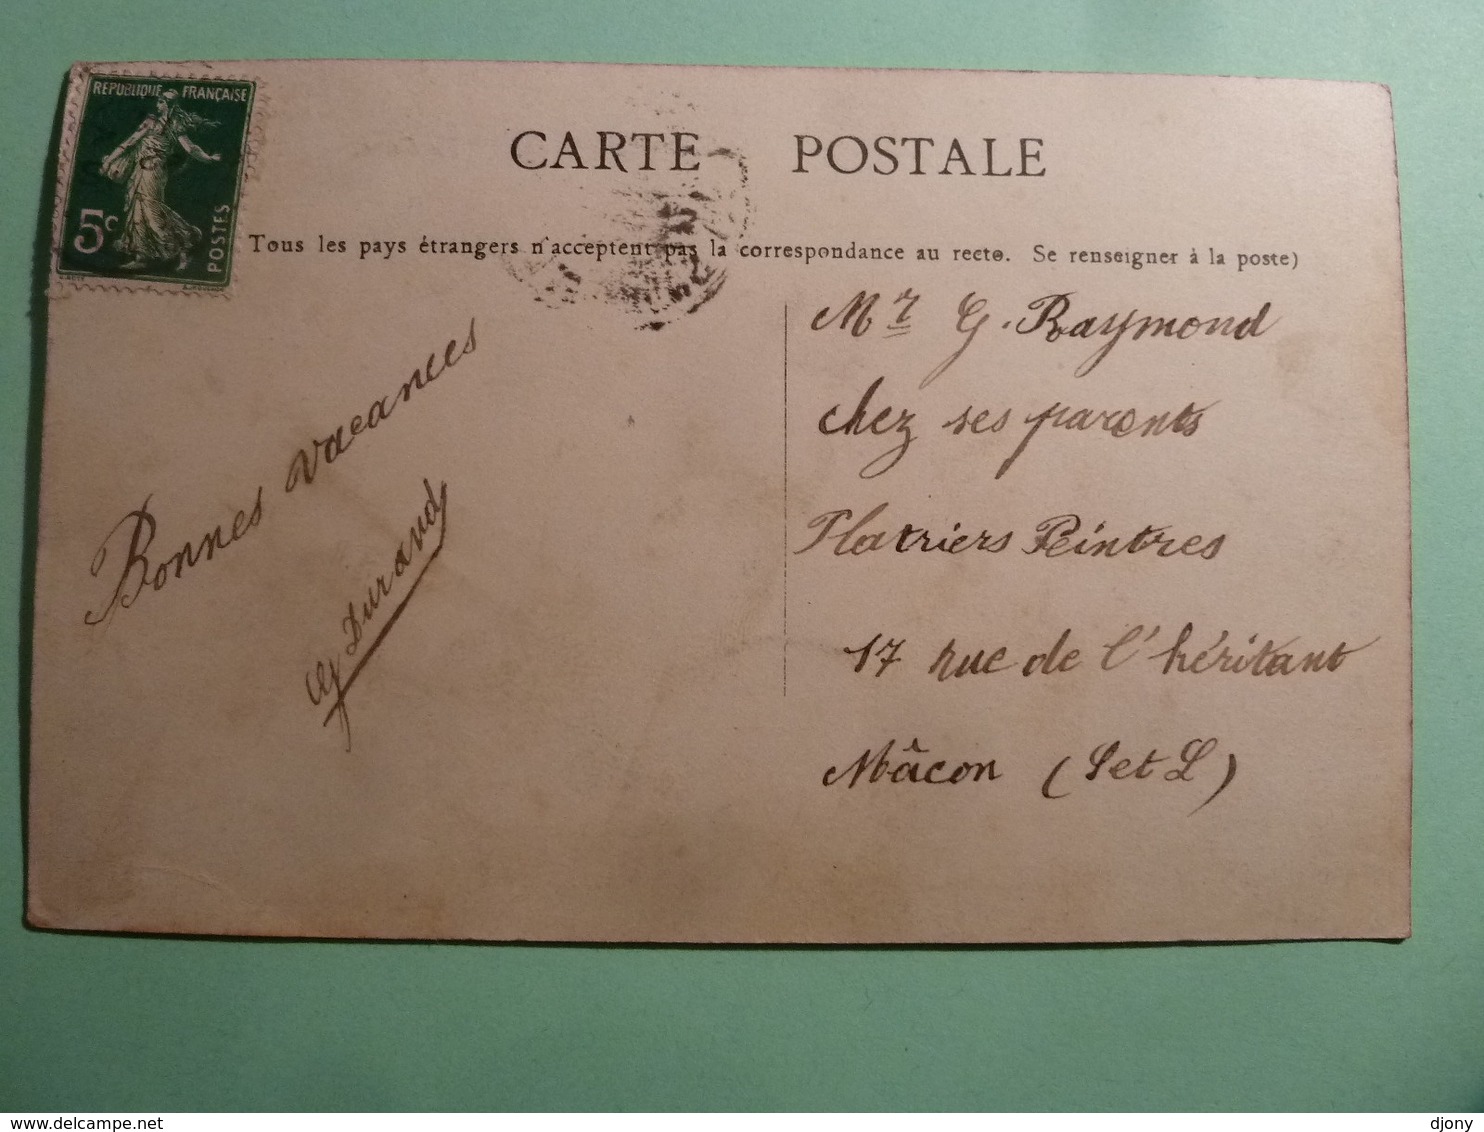 REPUBLIQUE FRANÇAISE
5c
POSTES
CARTE POSTALE
Tous les pays étrangers n'acceptent pas la correspondance au recto. Se renseigner à la poste)
Bonnes vacances
Durand
Mr G. Raymond
chez ses parents
Platriers Peintres
17 rue de l'héritant
Mâcon (S et L)
delcampe.net
djony